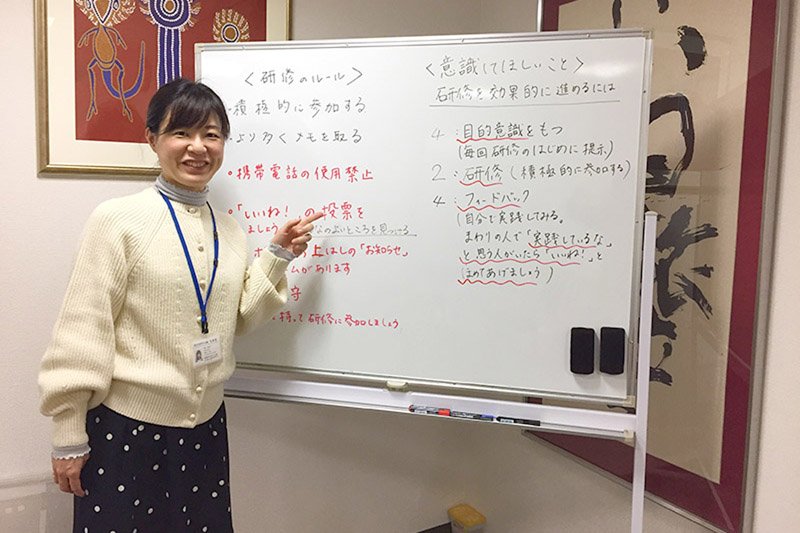 〈研修のルール〉
・積極的に参加する
より多くメモを取る
・携帯電話の使用禁止
・「いいね!」の投票を
ましょう
なのよいところを見つける
上はしの「お知らせ」
ムがあります
守
持って研修に参加しましょう
〈意識してほしいこと〉
研修を効果的に進めるには
4:目的意識をもつ
(毎回研修のはじめに提示)
2:研修(積極的に参加する)
4:フィードバック
(自分で実践してみる。
まわりの人で「実践しているな」
と思う人がいたら「いいね!」と
ほめてあげましょう)